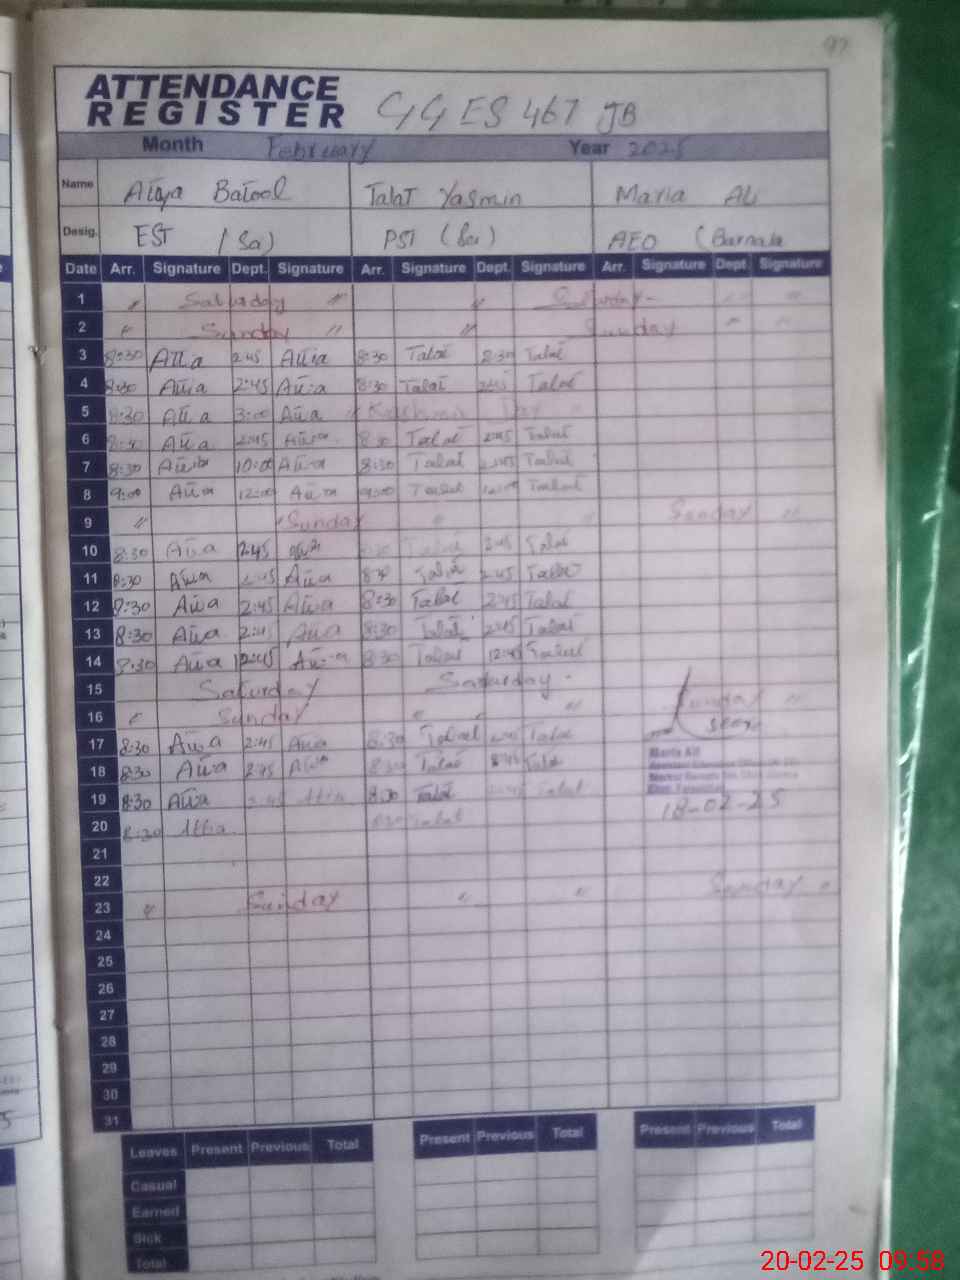 97
ATTENDANCE
REGISTER GGES 467 JB
Month February Year 2025
Name Atiya Batool Talat Yasmin Maria Ali
Desig. EST (Sci) PST AEO (Barnala
Date Arr. Signature Dept. Signature Arr. Signature Dept. Signature Arr. Signature Dept. Signature
1 " Saturday " " Saturday - " "
2 " Sunday " " Sunday " "
3 8:30 Attia 2:45 Attia 8:30 Talat 8:30 Talat
4 8:30 Attia 2:45 Attia 8:30 Talat 2:45 Talat
5 8:30 Attia 3:00 Attia " Kashmir Day "
6 Attia 2:45 Attia 8:30 Talat 2:45 Talat
7 8:30 Attia 10:00 Attia 8:30 Talat 2:45 Talat
8 9:00 Attia 12:00 Attia 9:00 Talat 12:00 Talat
9 " Sunday " " Sunday "
10 8:30 Attia 2:45 Attia 8:30 Talat 2:45 Talat
11 8:30 Attia 2:45 Attia 8:30 Talat 2:45 Talat
12 8:30 Attia 2:45 Attia 8:30 Talat 2:45 Talat
13 8:30 Attia 2:45 Attia 8:30 Talat 2:45 Talat
14 8:30 Attia 12:45 Attia 8:30 Talat 12:45 Talat
15 Saturday Saturday -
16 " Sunday " " " Sunday "
17 8:30 Attia 2:45 Attia 8:30 Talat 2:45 Talat
seen
18 8:30 Attia 2:45 Attia 8:30 Talat 2:45 Talat
Maria Ali
19 8:30 Attia 2:45 Attia 8:30 Talat 2:45 Talat
18-02-25
20 8:30 Attia 8:30 Talat
21
22
23 " Sunday " " Sunday "
24
25
26
27
28
29
30
31
Leaves Present Previous Total Present Previous Total Present Previous Total
Casual
Earned
Sick
Total
20-02-25 09:58